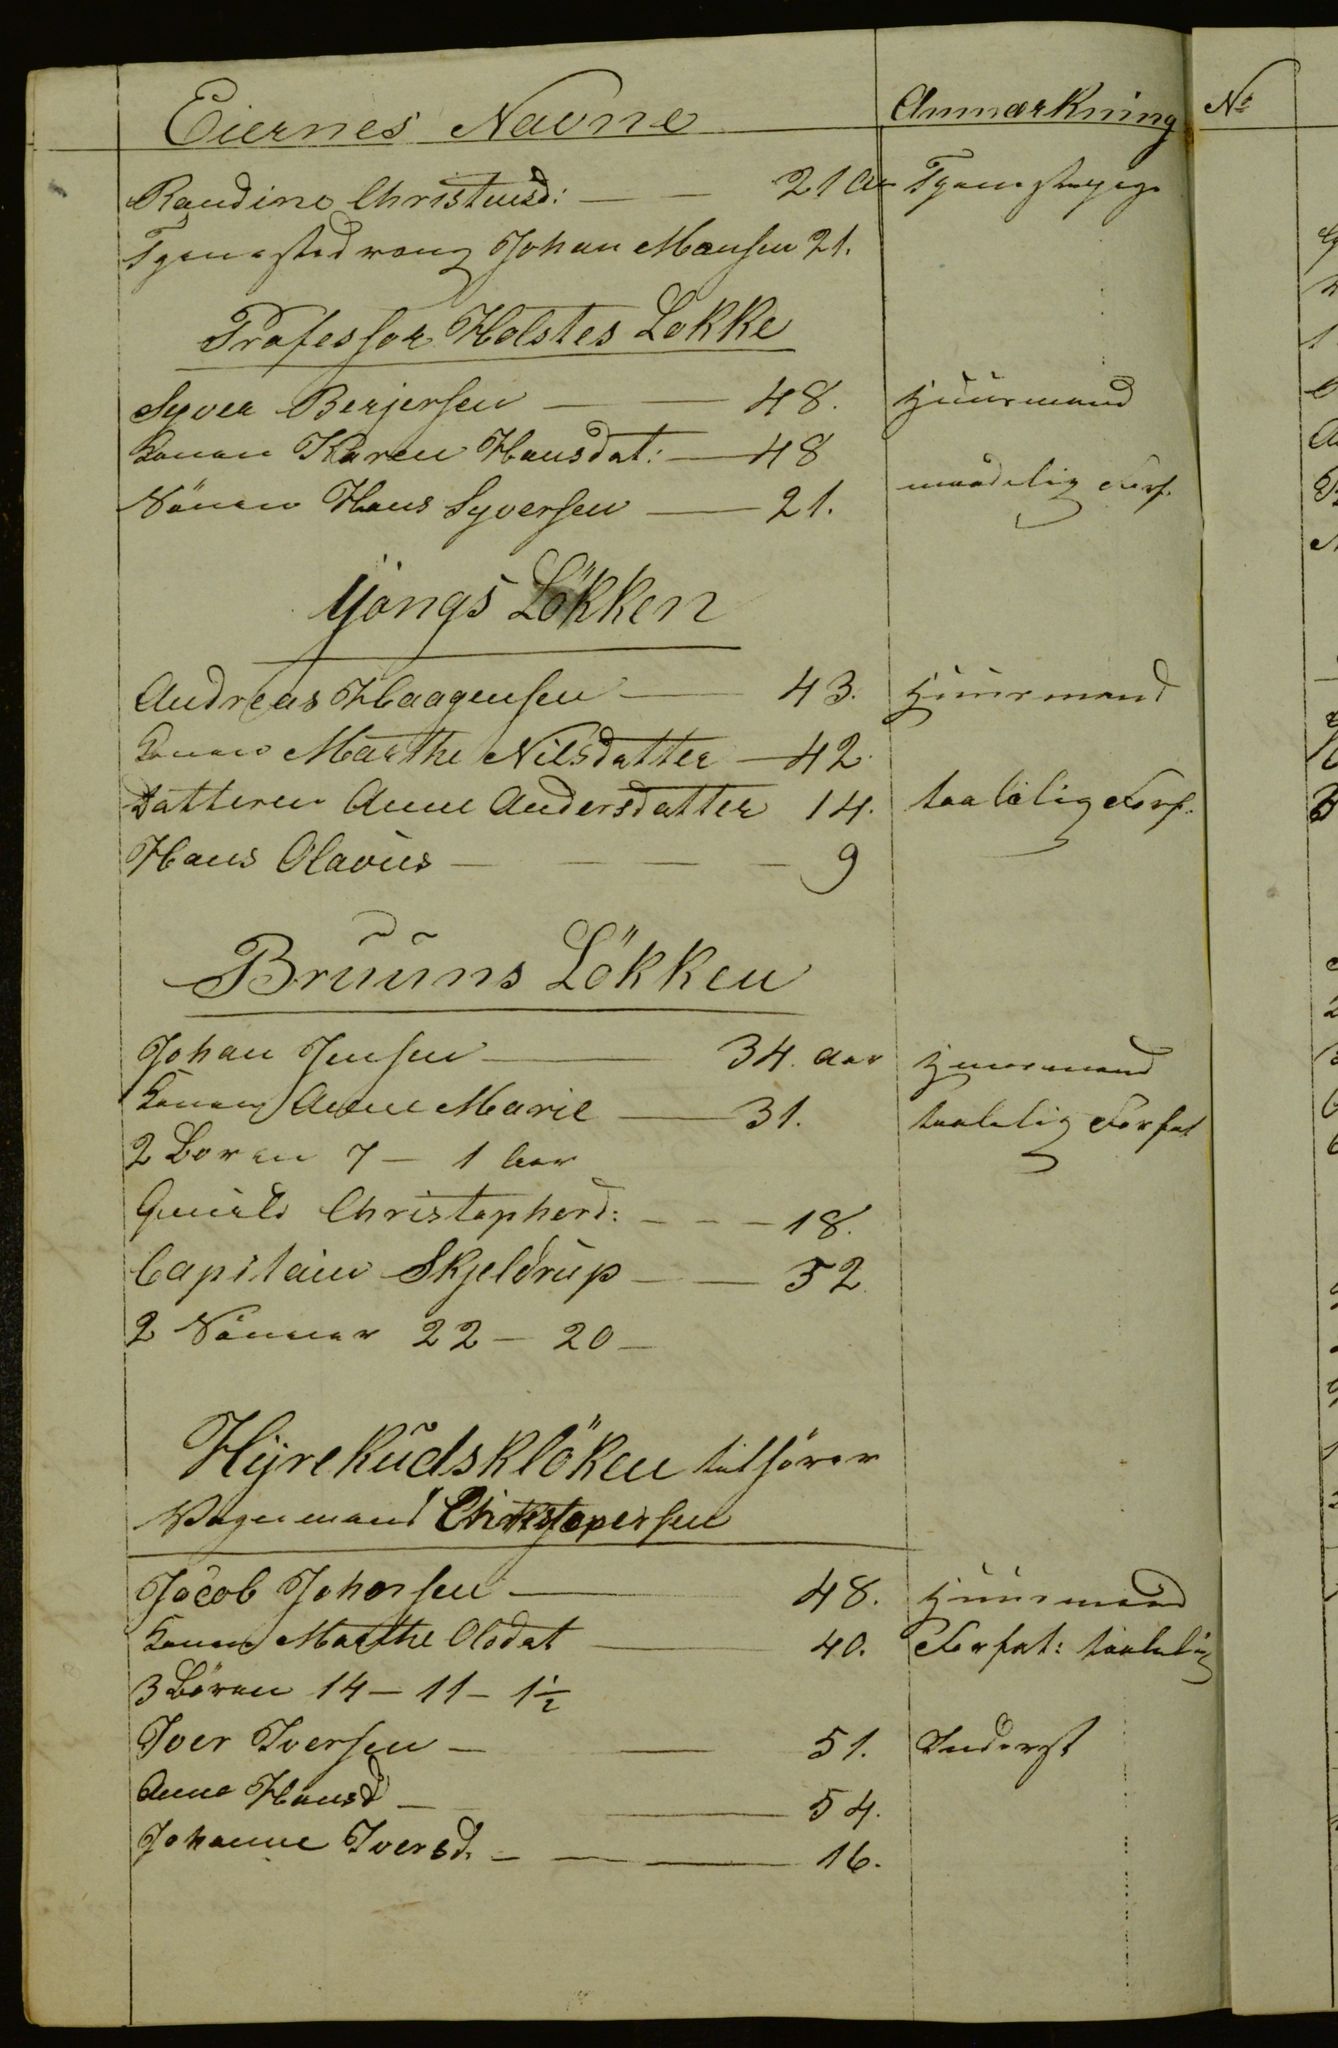 Eiernes Navne Anmærkning No
Randine Christensd: 21 Aar Tjenestepige
Tjenestedreng Johan Mansen 21.
Professor Holstes Løkke
Syver Berjersen 48. Huusmand
Konen Karen Hansdat: 48
Sönen Hans Syversen 21. maadelig Forf.
Yongs Lökken
Andreas Haagensen 43. Huusmand
Konen Marthe Nilsdatter 42.
Datteren Anne Andersdatter 14. taalelig Forf.
Hans Olavus 9
Bruuns Lökken
Johan Jensen 34. Aar Huusmand
Konen Anne Marie 31. taalelig Forfat
2 Børen 7 - 1 Aar
Gunild Christopherd: 18.
Capitain Skjeldrup 52
2 Sönner 22 - 20 -
Hyrekudsklöken tilhörer
Vognmand Christopersen
Jacob Johansen 48. Huusmand
Konen Marthe Olsdat 40. Forfat: taalelig
3 Bören 14 - 11 - 1½
Iver Iversen 51. Inderst
Anne Hansd 54.
Johanne Iversd. 16.